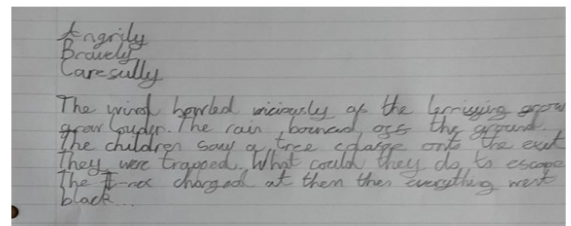 Angrily
Bravely
Caresully
The wind howled viciously as the terrissing grow
grow louder. The rain bounced oss the ground.
The children saw a tree colapse onto the exit
They were trapped. What could they do to escape
The T-rex charged at them then everything went
black...